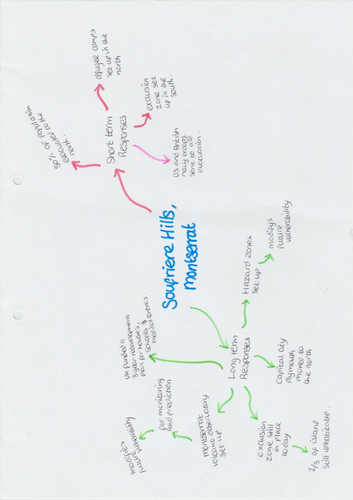 Soufriere Hills,
Montserrat
Short term
Responses
50% of population
evacuated to the
north.
refugee camps
set up in the
north
exclusion
zone set
up in the
south.
US and British
navy troops
sent to aid
evacuation.
Long term
Responses
UK funded a
3 year redevelopment
plan for houses,
schools &
medical centres.
montserrat
volcano observatory
set up
for monitoring
and prediction
future
exclusion
zone still
in place
today
2/3 of island
still uninhabitable.
Capital city
Plymouth
moved to
the north
Hazard zones
set up
modifys
future
vulnerability